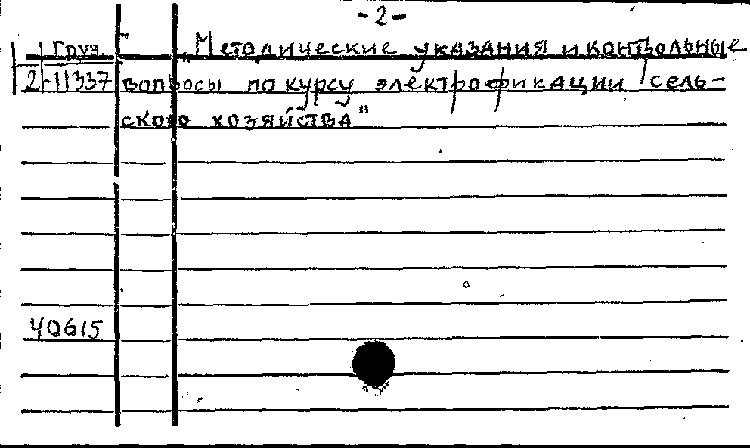 -2-
Груз. „Методические указания и контрольные
2-11337 вопросы по курсу электрофикации сель-
ского хозяйства"
40615